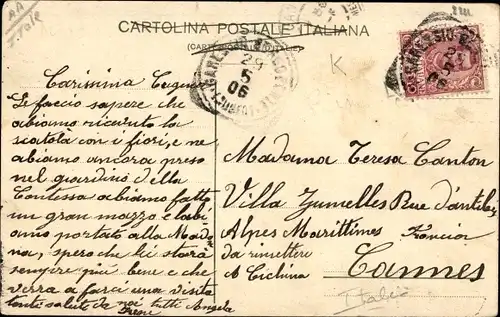 AA
Itale
CARTOLINA POSTALE ITALIANA
(CARTE POSTALE D'ITALIE)
29
5
06
K
Carissima
Le faccio sapere che
abiamo ricevuto la
scatola con i fiori, e ne
abiamo ancora preso
nel giardino della
Contessa abiamo fatto
un gran mazzo e labi
amo portato alla Mado
na, spero che lei stara
sempre più bene e che
verra a farci una visita
tante salute da noi tutti Angela
Irene
Madama Teresa Canton
Villa Jumelles Rue d'antibes
Alpes Marittimes Francia
da rimettere
A Cichina
Cannes
Italie